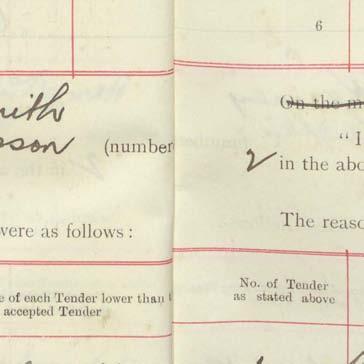 6
On the m
"I
in the abo
The reaso
No. of Tender
as stated above
(number
were as follows:
e of each Tender lower than
accepted Tender